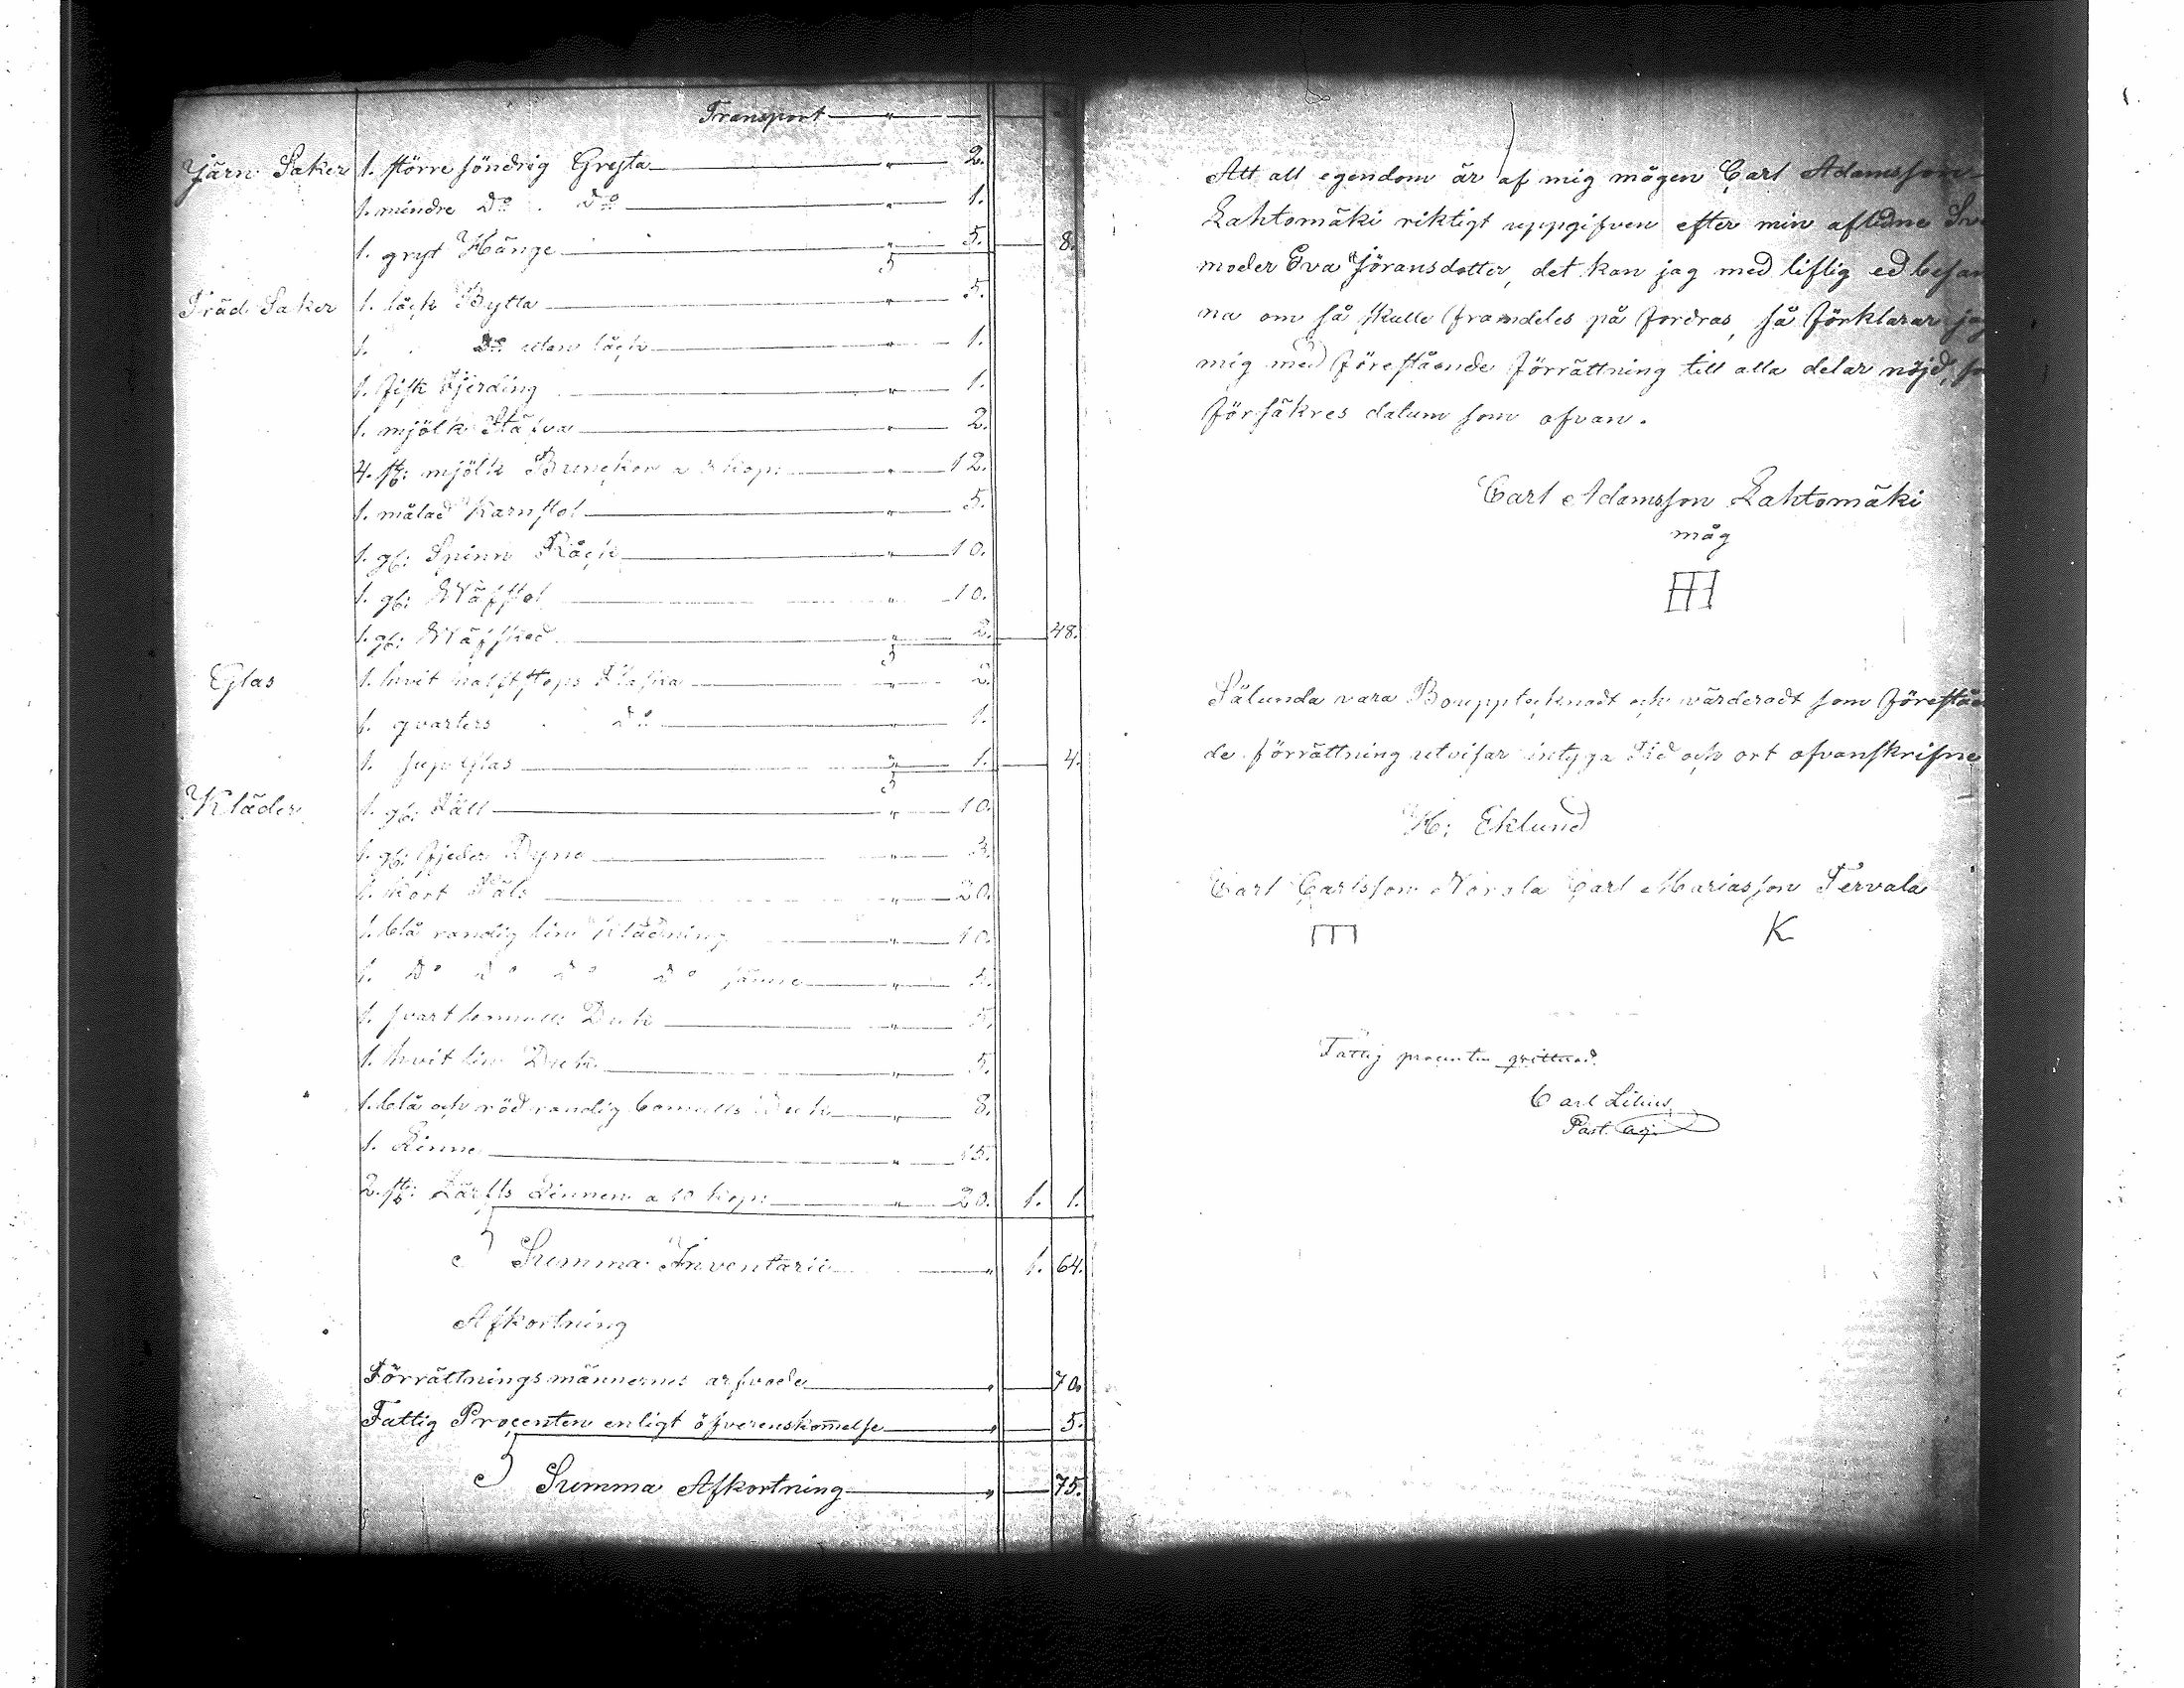 Transport
Järn Saker 1. större söndrig Gryta 2.
1. mindre Do Do 1.
1. gryt Hänge 5. 8.
Träd Saker 1. läck Bytta 5.
1. Do utan läck 1.
1. fisk fjerding 1.
1. mjölk Stäfva 2.
4. st: mjölk Buncken a 3 kop: 12.
1. målad Karnstol 5.
1. gl: Spinn Råck 10.
1. gl: Wäfstol 10.
1. gl: Wäfsked 2. 48.
Glas 1. hvit halfstops Flaska 2.
1. qvarters Do 1.
1. sup Glas 1. 4.
Kläder 1. gl: Fäll 10.
1. gl: fjeder Dyna 3.
1. kort Päls 20.
1. blå randig lin Klädning 10.
1. Do Do Do Do sämre 5.
1. svart bomulls Duk 5.
1. hvit lin Duk 5.
1. blå och röd randig bomulls Duk 8.
1. Linne 15.
2. st: Lärfts Linnen a 10 kop: 20. 1. 1.
Summa Inventarii 1. 64.
Afkortning
Förrättningsmännernes arfvode 70.
Fattig Procenten enligt öfverenskommelse 5.
Summa Afkortning 75.
Att all egendom är af mig mågen Carl Adamsson
Lahtomäki riktigt uppgifven efter min aflidne Sve
moder Eva Jöransdotter, det kan jag med liflig ed besan
na om så skulle framdeles på fordras, så förklarar jag
mig med förestående förrättning till alla delar nöjd, so
försäkres datum som ofvan.
Carl Adamsson Lahtomäki
måg
Sålunda vara Bouppteknadt och värderadt som föreståen
de förrättning utvisar intyga Tid och ort ofvanskrifne
H: Eklund
Carl Carlsson Norala Carl Mariasson Tervala
K
Fattig procenten qvitterad.
Carl Lilius
Past. adj.